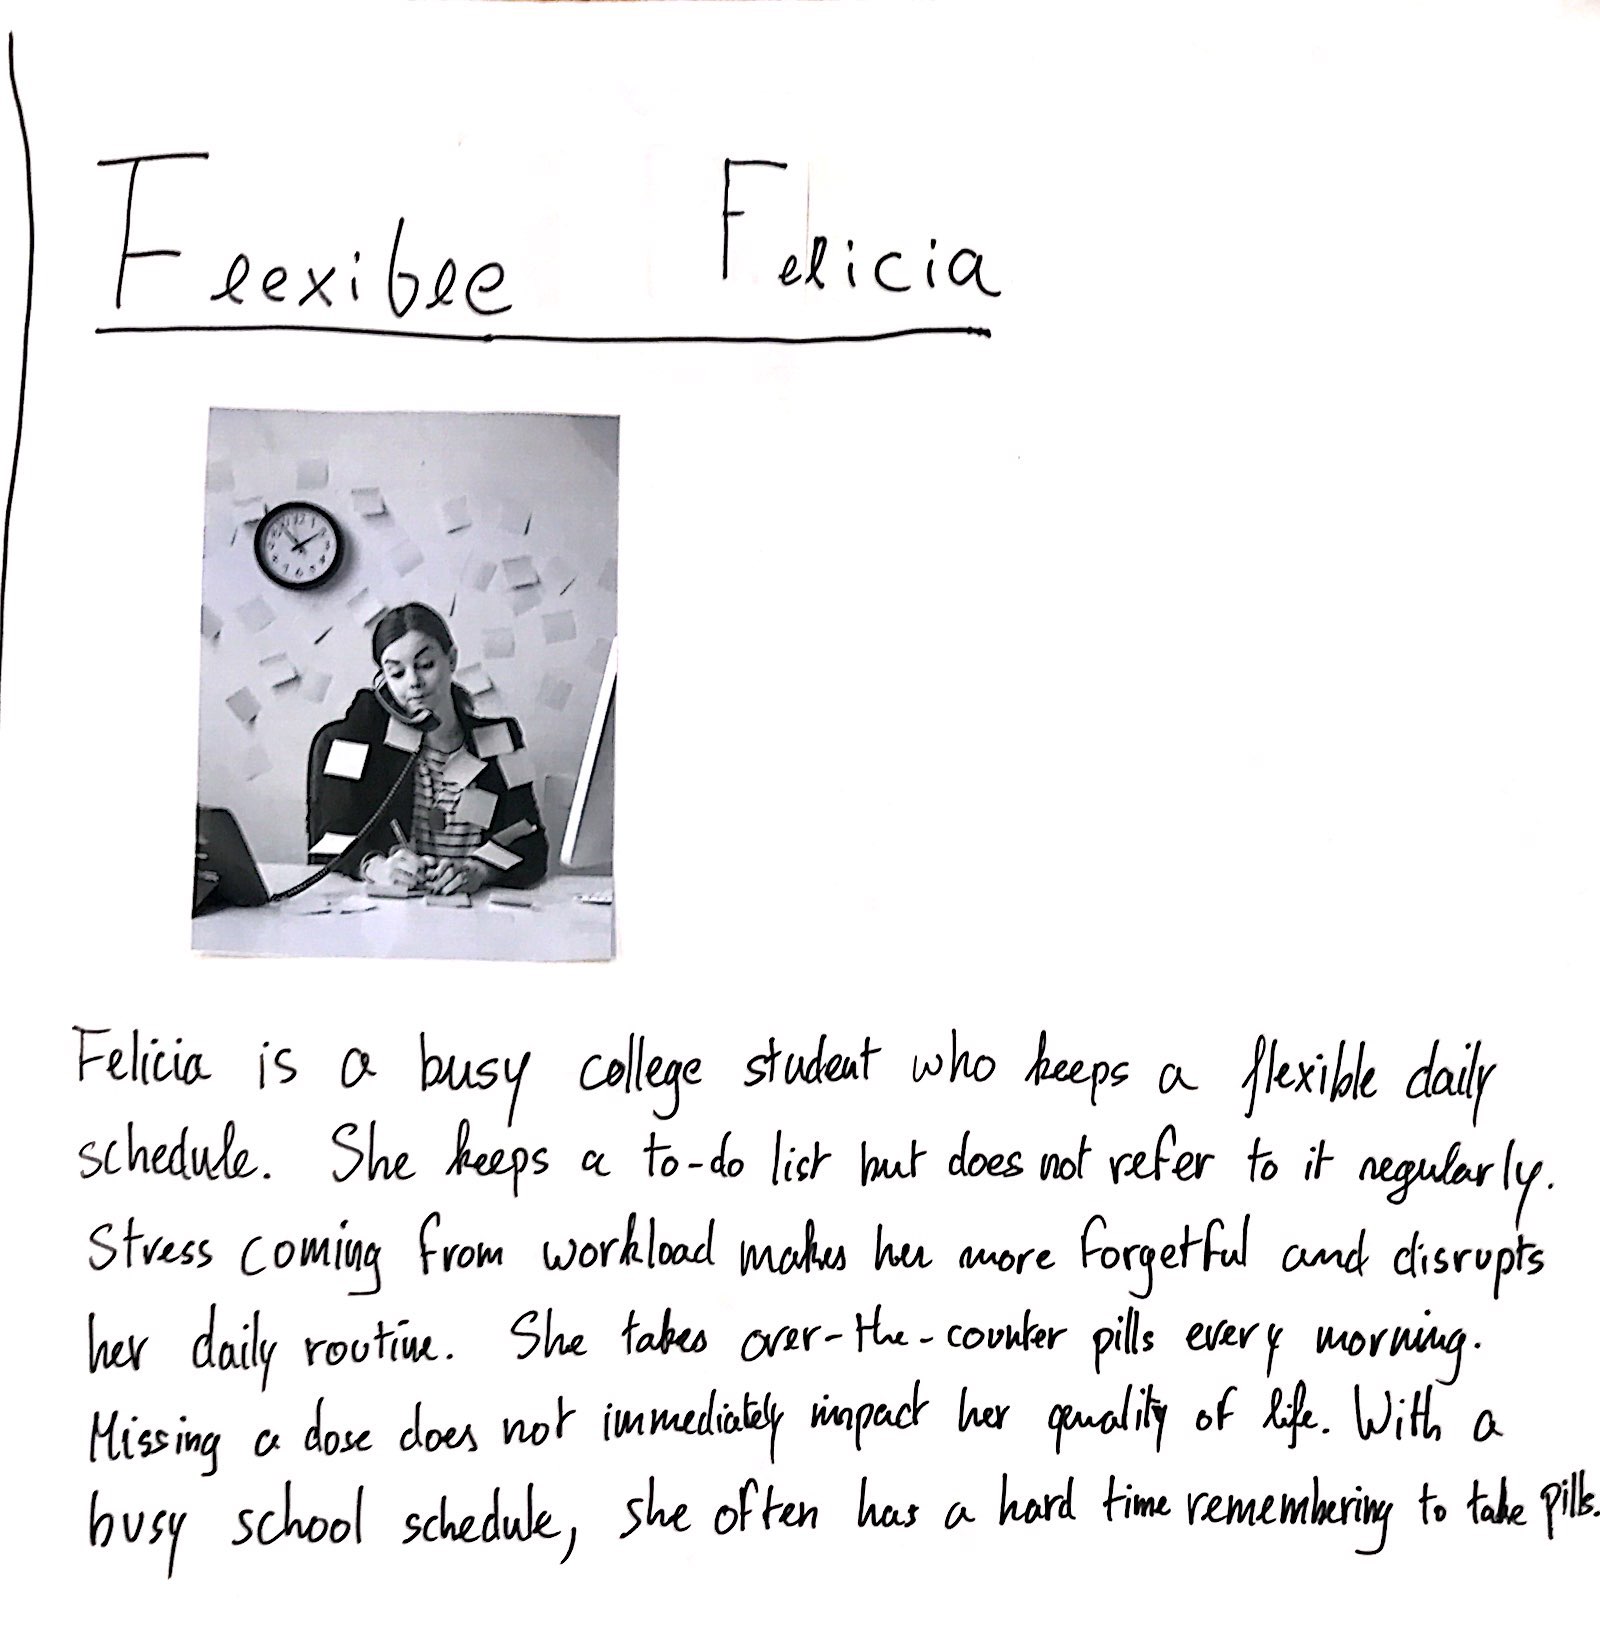 Flexible Felicia
Felicia is a busy college student who keeps a flexible daily
schedule. She keeps a to-do list but does not refer to it regularly.
Stress coming from workload makes her more forgetful and disrupts
her daily routine. She takes over-the-counter pills every morning.
Missing a dose does not immediately impact her quality of life. With a
busy school schedule, she often has a hard time remembering to take pills.